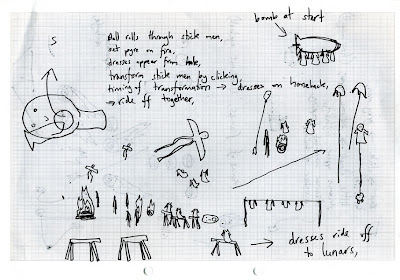 S
Ball rolls through stick men,
set pyre on fire,
dresses appear from hole,
transform stick men by clicking
timing of transformation → dresses on horseback,
→ ride off together,
bomb at start
→ dresses ride off
to lunars,